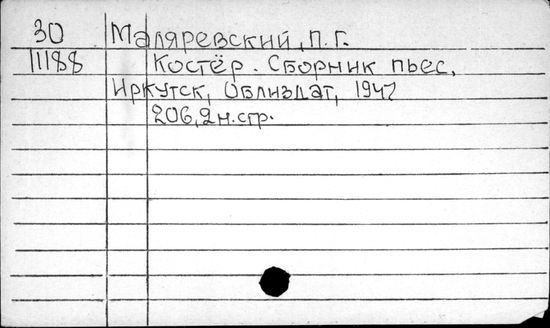 30 Маляревский, П. Г.
11188 Костёр. Сборник пьес.
Иркутск, Облиздат, 1947
206, 2 н. стр.